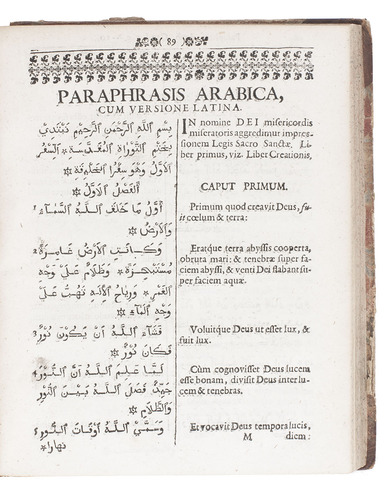 89
PARAPHRASIS ARABICA,
CUM VERSIONE LATINA.
بسم الله الرحمن الرحيم نبتدي
بختم التوراة المقدسة * السفر
الأول وهو سفر الخليقة *
الفصل الأول
أول ما خلق الله السماء
والأرض
وكانت الأرض غامرة
مستبحرة * وظلام على وجه
الغمر * ورياح الإله تهب على
وجه الماء *
فشاء الله أن يكون نور
فكان نور *
لما علم الله أن النور
جيد فصل الله بين النور
والظلام *
وسمى الله أوقات النور
نهارا *
IN nomine DEI misericordis
miseratoris aggredimur impres-
sionem Legis Sacro Sanctæ. Li-
ber primus, viz. Liber Creationis,
CAPUT PRIMUM.
Primum quod creavit Deus, fu-
it cœlum & terra:
Eratque terra abyssis cooperta,
obruta mari: & tenebræ super fa-
ciem abyssi, & venti Dei flabant su-
per faciem aquæ.
Voluitque Deus ut esset lux, &
fuit lux.
Cùm cognovisset Deus lucem
esse bonam, divisit Deus inter lu-
cem & tenebras.
Et vocavit Deus tempora lucis,
M diem: